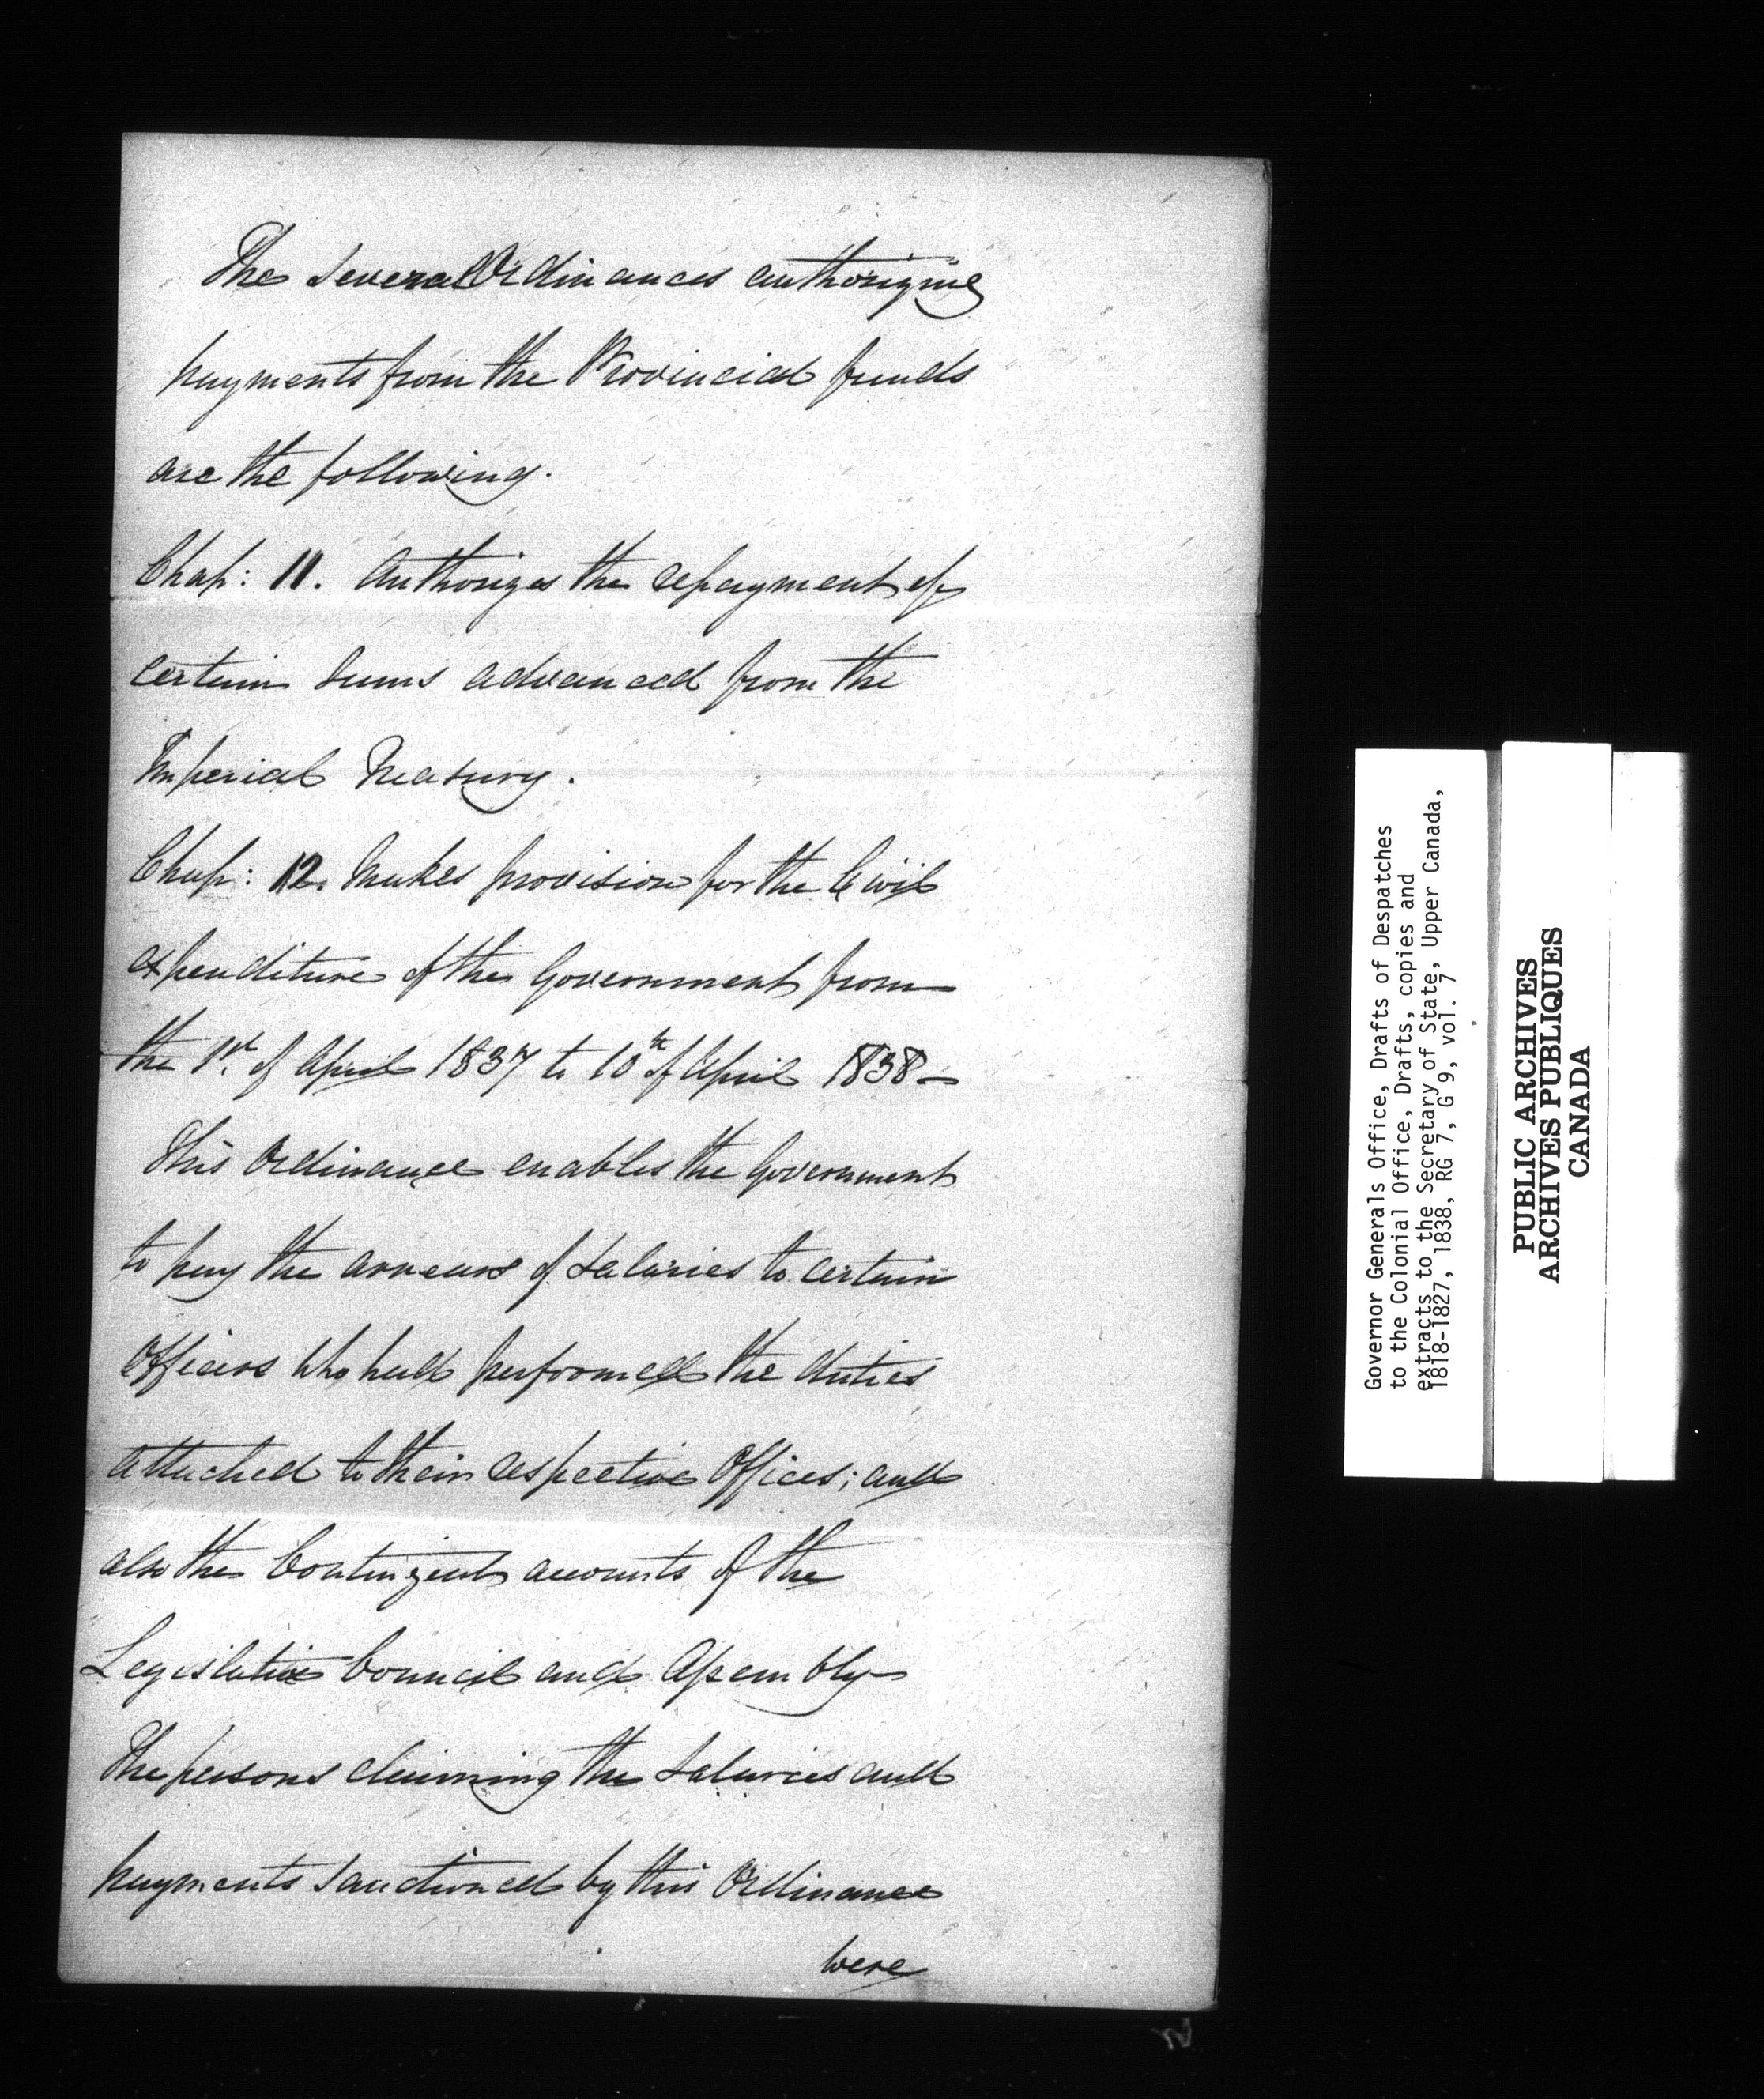 The several Ordinances authorizing
payments from the Provincial funds
are the following.
Chap: 11. Authorizes the repayment of
certain sums advanced from the
Imperial Treasury.
Chap: 12. Makes provision for the Civil
expenditure of the Government from
the 1st. of April 1837 to 10th of April 1838 —
This Ordinance enables the Government
to pay the arrears of Salaries to certain
Officers who had performed the duties
attached to their respective Offices; and
also the Contingent accounts of the
Legislative Council and Assembly —
The persons claiming the Salaries and
payments sanctioned by this Ordinance
were
Governor Generals Office, Drafts of Despatches
to the Colonial Office, Drafts, copies and
extracts to the Secretary of State, Upper Canada,
1818-1827, 1838, RG 7, G 9, vol. 7
PUBLIC ARCHIVES
ARCHIVES PUBLIQUES
CANADA